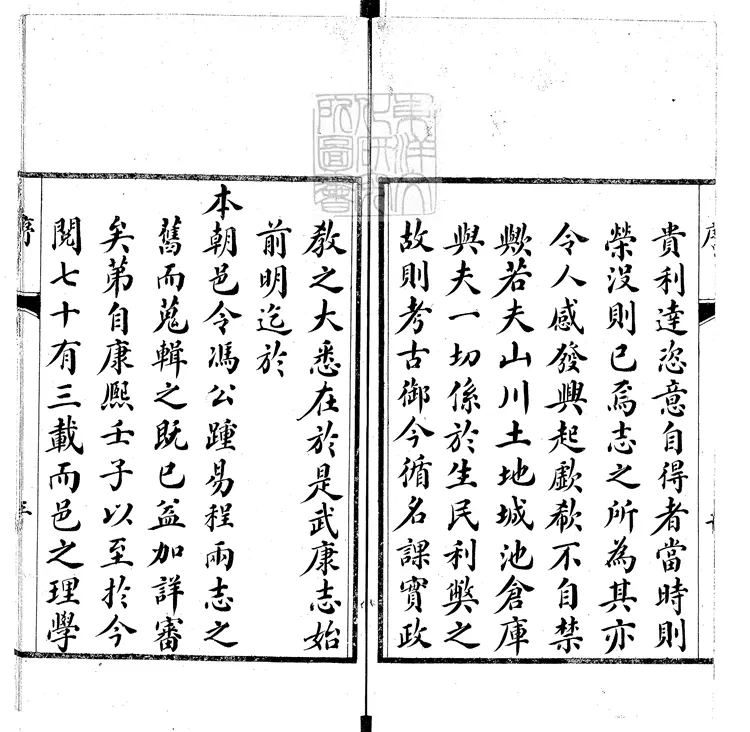 貴利達恣意自得者當時則
榮沒則已焉志之所為其亦
令人感發興起歔欷不自禁
歟若夫山川土地城池倉庫
與夫一切係於生民利弊之
故則考古御今循名課實政
教之大悉在於是武康志始
前明迄於
本朝邑令馮公踵易程兩志之
舊而蒐輯之既已益加詳審
矣第自康熙壬子以至於今
閱七十有三載而邑之理學
序
三
東洋文化研究所圖書